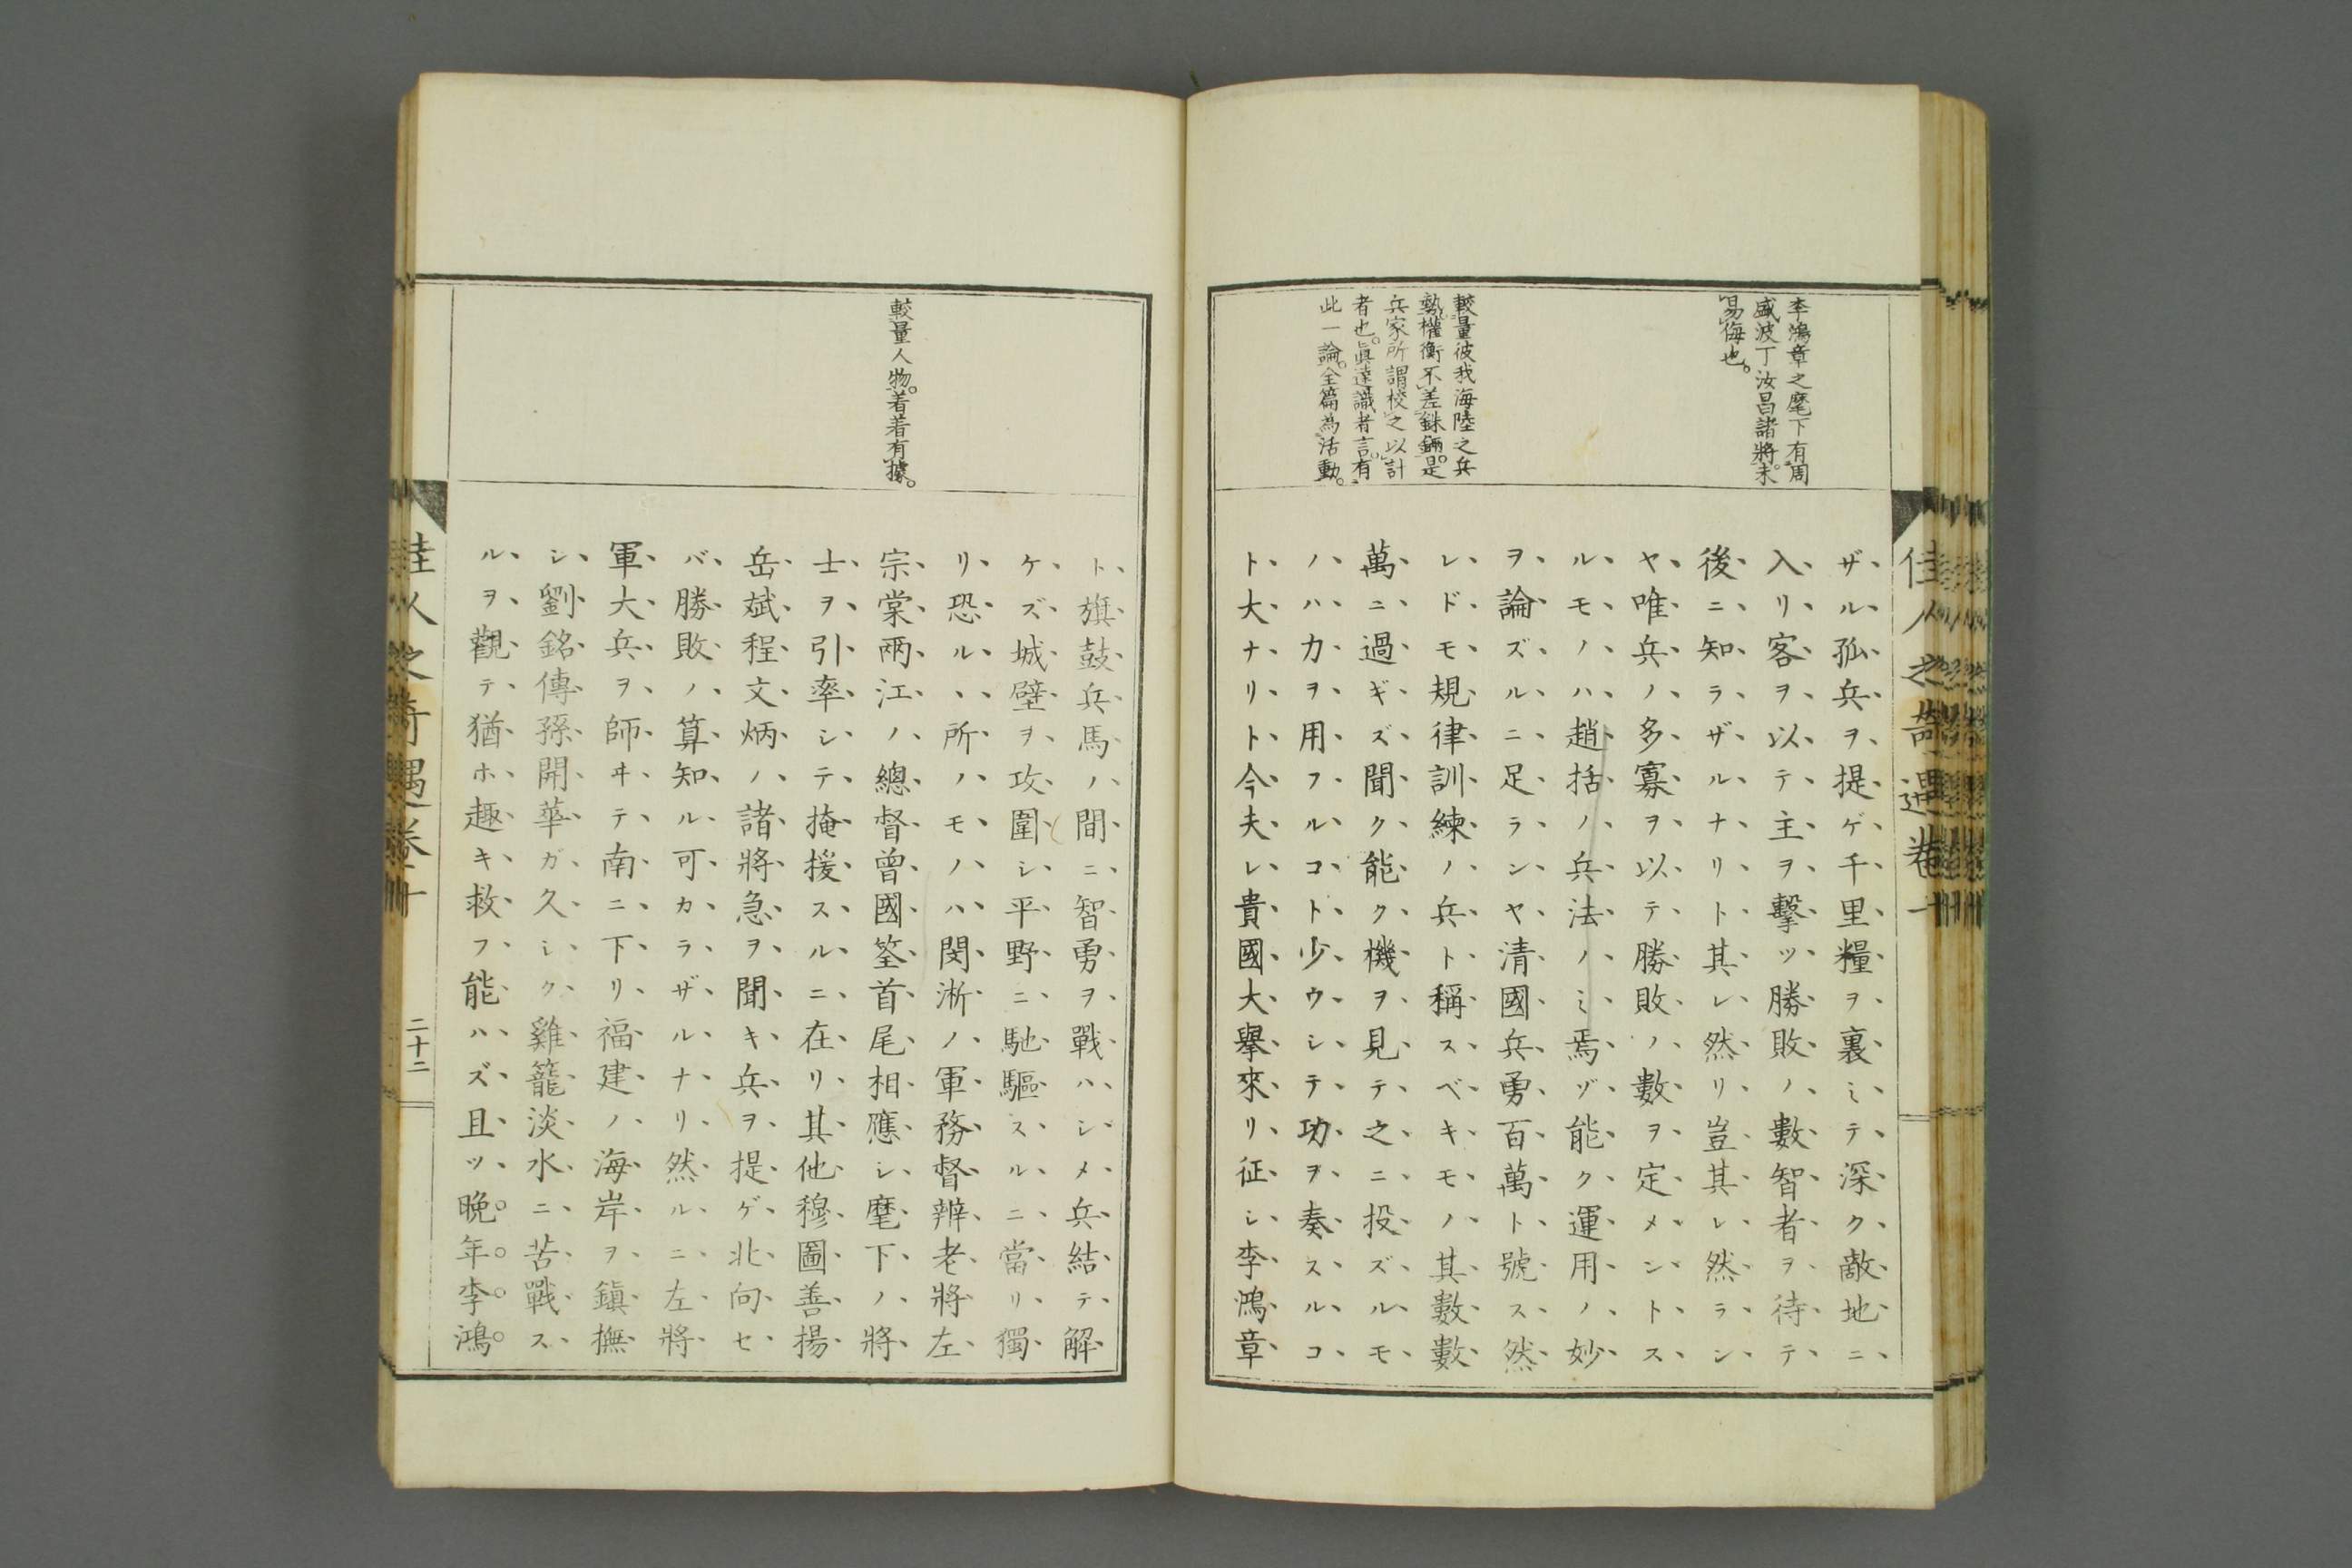 李鴻章之麾下有周
盛波丁汝昌諸將。未
易侮也。
較量彼我海陸之兵
勢。權衡不差銖錙。是
兵家所謂校之以計
者也。眞達識者言。有
此一論。全篇為活動。
佳人之奇遇卷十
ザル孤兵ヲ提ゲ千里糧ヲ裏ミテ深ク敵地ニ
入リ客ヲ以テ主ヲ擊ツ勝敗ノ數智者ヲ待テ
後ニ知ラザルナリト其レ然リ豈其レ然ラン
ヤ唯兵ノ多寡ヲ以テ勝敗ノ數ヲ定メントス
ルモノハ趙括ノ兵法ノミ焉ゾ能ク運用ノ妙
ヲ論ズルニ足ランヤ清國兵勇百萬ト號ス然
レドモ規律訓練ノ兵ト稱スベキモノ其數數
萬ニ過ギズ聞ク能ク機ヲ見テ之ニ投ズルモ
ノハ力ヲ用フルコト少ウシテ功ヲ奏スルコ
ト大ナリト今夫レ貴國大擧來リ征シ李鴻章
較量人物。着着有據。
ト旗鼓兵馬ノ間ニ智勇ヲ戰ハシメ兵結テ解
ケズ城壁ヲ攻圍シ平野ニ馳驅スルニ當リ獨
リ恐ルヽ所ノモノハ閔淅ノ軍務督辦老將左
宗棠兩江ノ總督曾國筌首尾相應シ麾下ノ將
士ヲ引率シテ掩援スルニ在リ其他穆圖善揚
岳斌程文炳ノ諸將急ヲ聞キ兵ヲ提ゲ北向セ
バ勝敗ノ算知ル可カラザルナリ然ルニ左將
軍大兵ヲ師ヰテ南ニ下リ福建ノ海岸ヲ鎭撫
シ劉銘傳孫開華ガ久シク雞籠淡水ニ苦戰ス
ルヲ觀テ猶ホ趣キ救フ能ハズ且ツ晩年李鴻
佳人之奇遇卷十
二十二